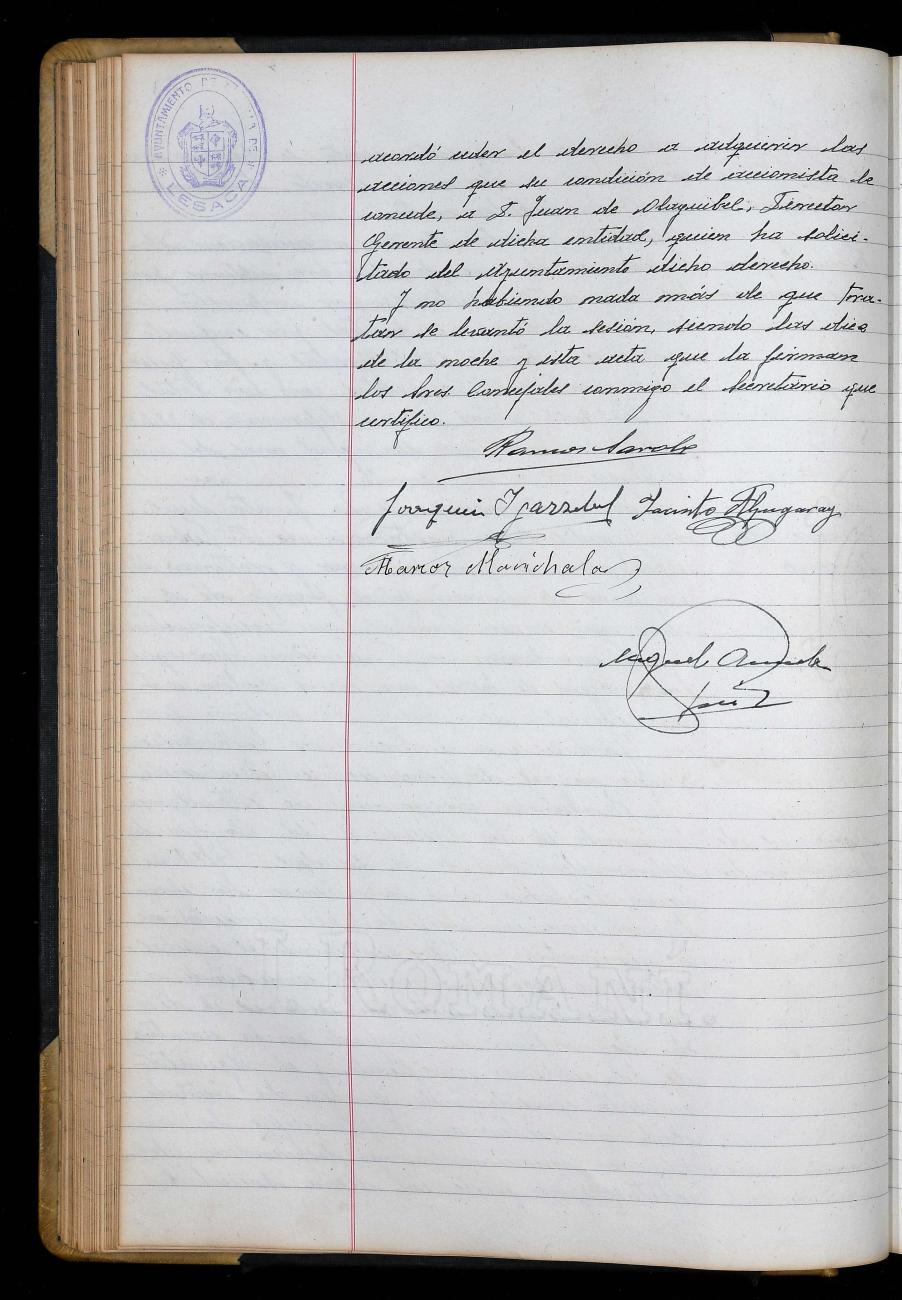 AYUNTAMIENTO DE
LESACA
acordó ceder el derecho a adquirir las
acciones que su condición de accionista le
concede, a D. Juan de Olaguibel, Director
Gerente de dicha entidad, quien ha solici-
tado del Ayuntamiento dicho derecho.
Y no habiendo nada más de que tra-
tar se levantó la sesión, siendo las diez
de la noche y esta acta que la firman
los Sres. Concejales conmigo el Secretario que
certifico.
Ramos
Joaquin Jacinto
Marichalar
Miguel